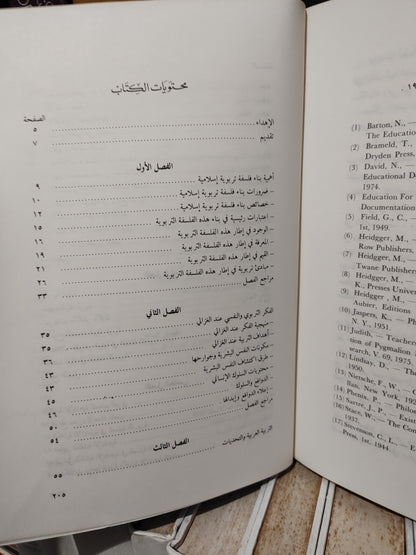 محتويات الكتاب
الصفحة
الإهداء ..... ٥
تقديم ..... ٧
الفصل الأول
أهمية بناء فلسفة تربوية إسلامية ..... ٩
- ضرورات بناء فلسفة تربوية إسلامية ..... ١٠
- خصائص بناء فلسفة تربوية إسلامية ..... ١٢
- اعتبارات رئيسية في بناء هذه الفلسفة التربوية ..... ١٥
- الوجود في إطار هذه الفلسفة التربوية ..... ١٦
- المعرفة في إطار هذه الفلسفة التربوية ..... ١٩
- القيم في إطار هذه الفلسفة التربوية ..... ٢١
- مبادئ تربوية في إطار هذه الفلسفة التربوية ..... ٢٦
مراجع الفصل ..... ٣٣
الفصل الثاني
الفكر التربوي والنفسي عند الغزالي ..... ٣٥
- منهجية الفكر عند الغزالي ..... ٣٥
- أهداف التربية عند الغزالي ..... ٣٦
- مكونات النفس البشرية وجوارحها ..... ٤٣
- طرق اكتشاف النفس البشرية ..... ٤٣
- محتويات السلوك الإنساني ..... ٤٥
- الدوافع والسلوك ..... ٤٦
- إعلاء الدوافع وإبدالها ..... ٥٠
مراجع الفصل ..... ٥٤
الفصل الثالث
التربية العربية والتحديات ..... ٥٥
٢٠٥
(1) Barton, N., —
The Education
(2) Brameld, T.,
Dryden Press,
(3) David, N., —
Educational D
1974.
(4) Education For
Documentation
(5) Field, G., C., —
1st, 1949.
(6) Heidgger, M.,
Row Publishers,
(7) Heidgger, M., —
Twane Publishers
(8) Heidgger, M., —
K., Presses Univer
(9) Heidgger , M., —
Aubier, Editions
(10) Jaspers, K., — Ph
N. Y., 1951
(11) Judith, — Teacher
tion of Pygmalion
search, V. 69, 1975
(12) Lindsay, D., — The
1950.
(13) Nietsche, F., W. —
Bas, New York, 192
(14) Phenix, P., — Philos
(15) Sartre, J., P. — Exist
(16) Stace, W., — The Con
(17) Stevenson, C., L. — E
Press, 1st. 1944.